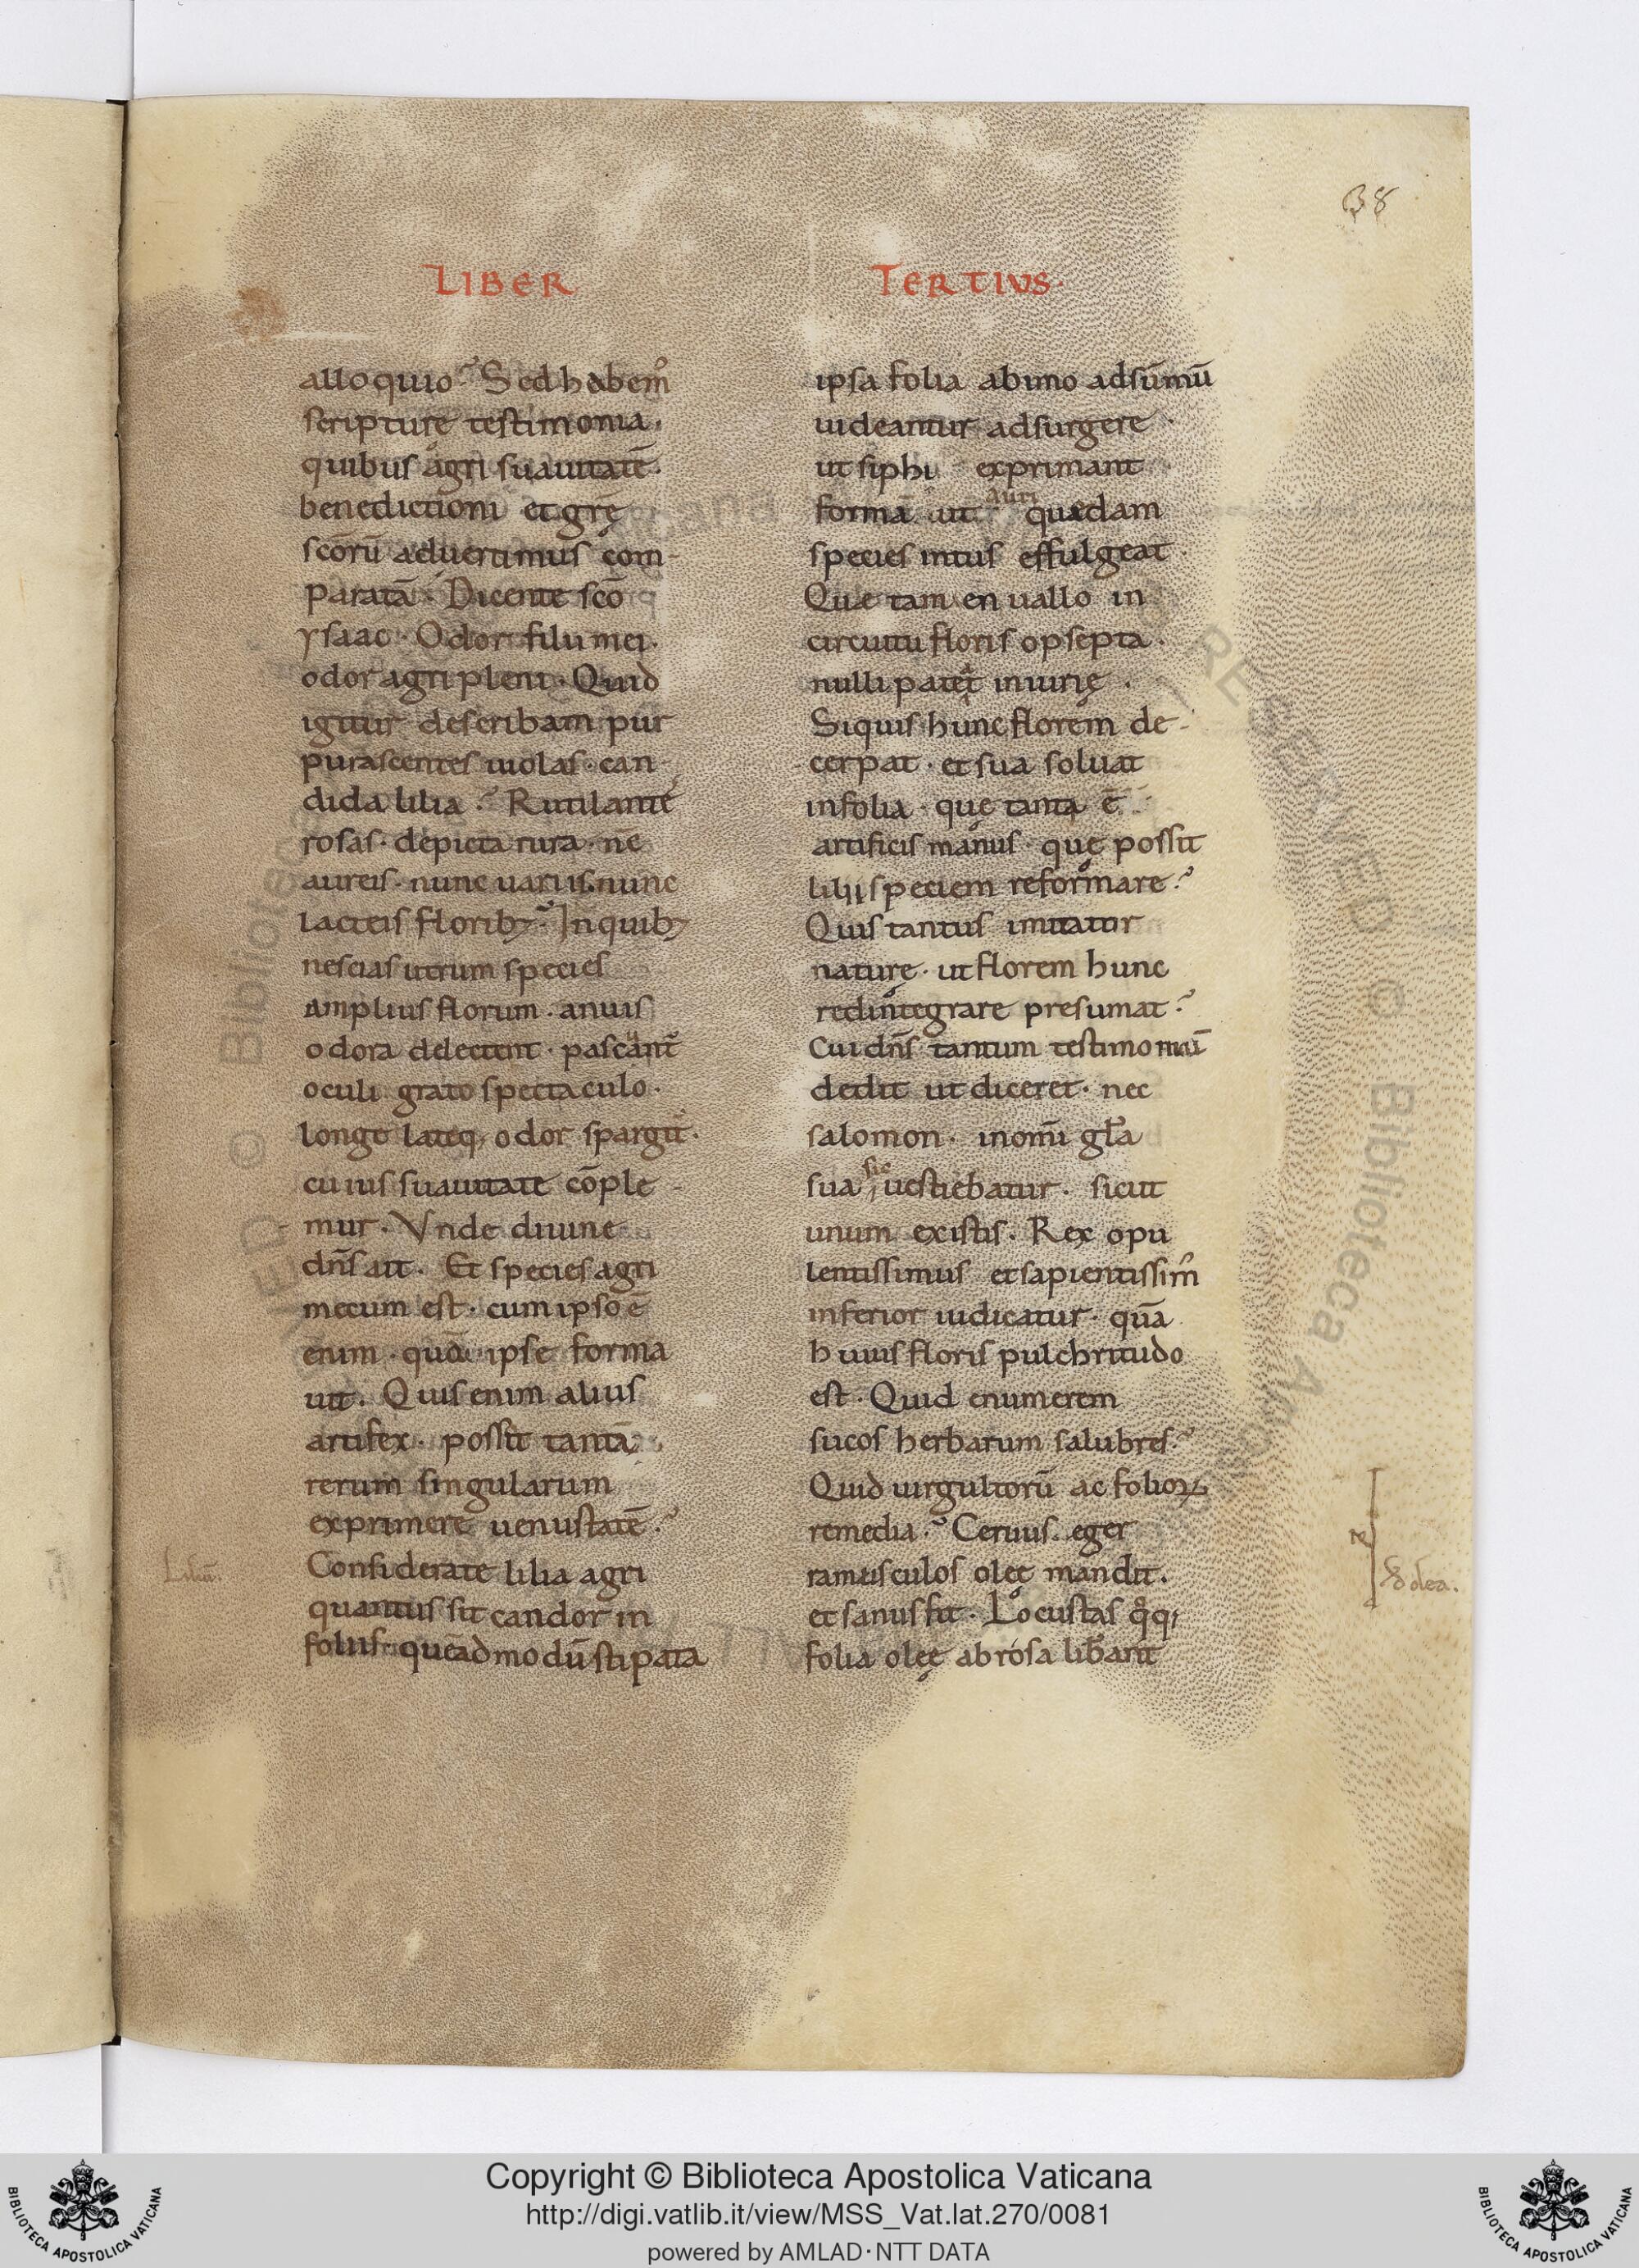 38
LIBER TERTIVS·
alloquio? Sed habem᷒
scripture testimonia.
quibus agri suauitatē
benedictioni et grę
scōrū aduertimus com-
paratā. Dicente scō
ysaac. Odor filii mei.
odor agri pleni. Quid
igitur describam pur
purascentes uiolas. can
dida lilia? Rutilante
rosas. depicta rura. nc̄
aureis. nunc uariis. nunc
lacteis florib; ? In quib;
nescias utrum species
amplius florum. an uis
odora delectent. pascant᷒
oculi grato spectaculo.
longe lateq; odor spargit᷒.
cuius suauitate cōple
mur. Vnde diuine
dn̄s ait. Et species agri
mecum est. cum ipso ē
enim. quā ipse forma
uit. Quis enim alius
artifex. possit tantā
rerum singularum
exprimere uenustatē?
Considerate lilia agri
quantus sit candor in
foliis. quēadmodū stipata
ipsa folia ab imo ad sūmū
uideantur adsurgere
ut siphi exprimant
formā. ut auri quædam
species intus effulgeat
Quæ tamen uallo in
circuitu floris opsepta.
nulli pateat iniurię.
Siquis hunc florem de-
cerpat. et sua soluat
in folia. quę tanta ē
artificis manus. quę possit
lilii speciem reformare?
Quis tantus imitator
naturę. ut florem hunc
redintegrare presumat?
Cui dn̄s tantum testimoniū
dedit ut diceret. nec
salomon. in omī gl̄a
sua sic uestiebatur. sicut
unum ex istis. Rex opu
lentissimus et sapientissim᷒
inferior iudicatur. quā
huius floris pulchritudo
est. Quid enumerem
sucos herbarum salubres?
Quid uirgultorū ac folioꝝ
remedia? Ceruus eger
ramusculos oleę mandit.
et sanus fit. Locustas qq;
folia oleę abrosa liberant
Liliū.
De olea.
Copyright © Biblioteca Apostolica Vaticana
http://digi.vatlib.it/view/MSS_Vat.lat.270/0081
powered by AMLAD·NTT DATA
BIBLIOTECA APOSTOLICA VATICANA
BIBLIOTECA APOSTOLICA VATICANA